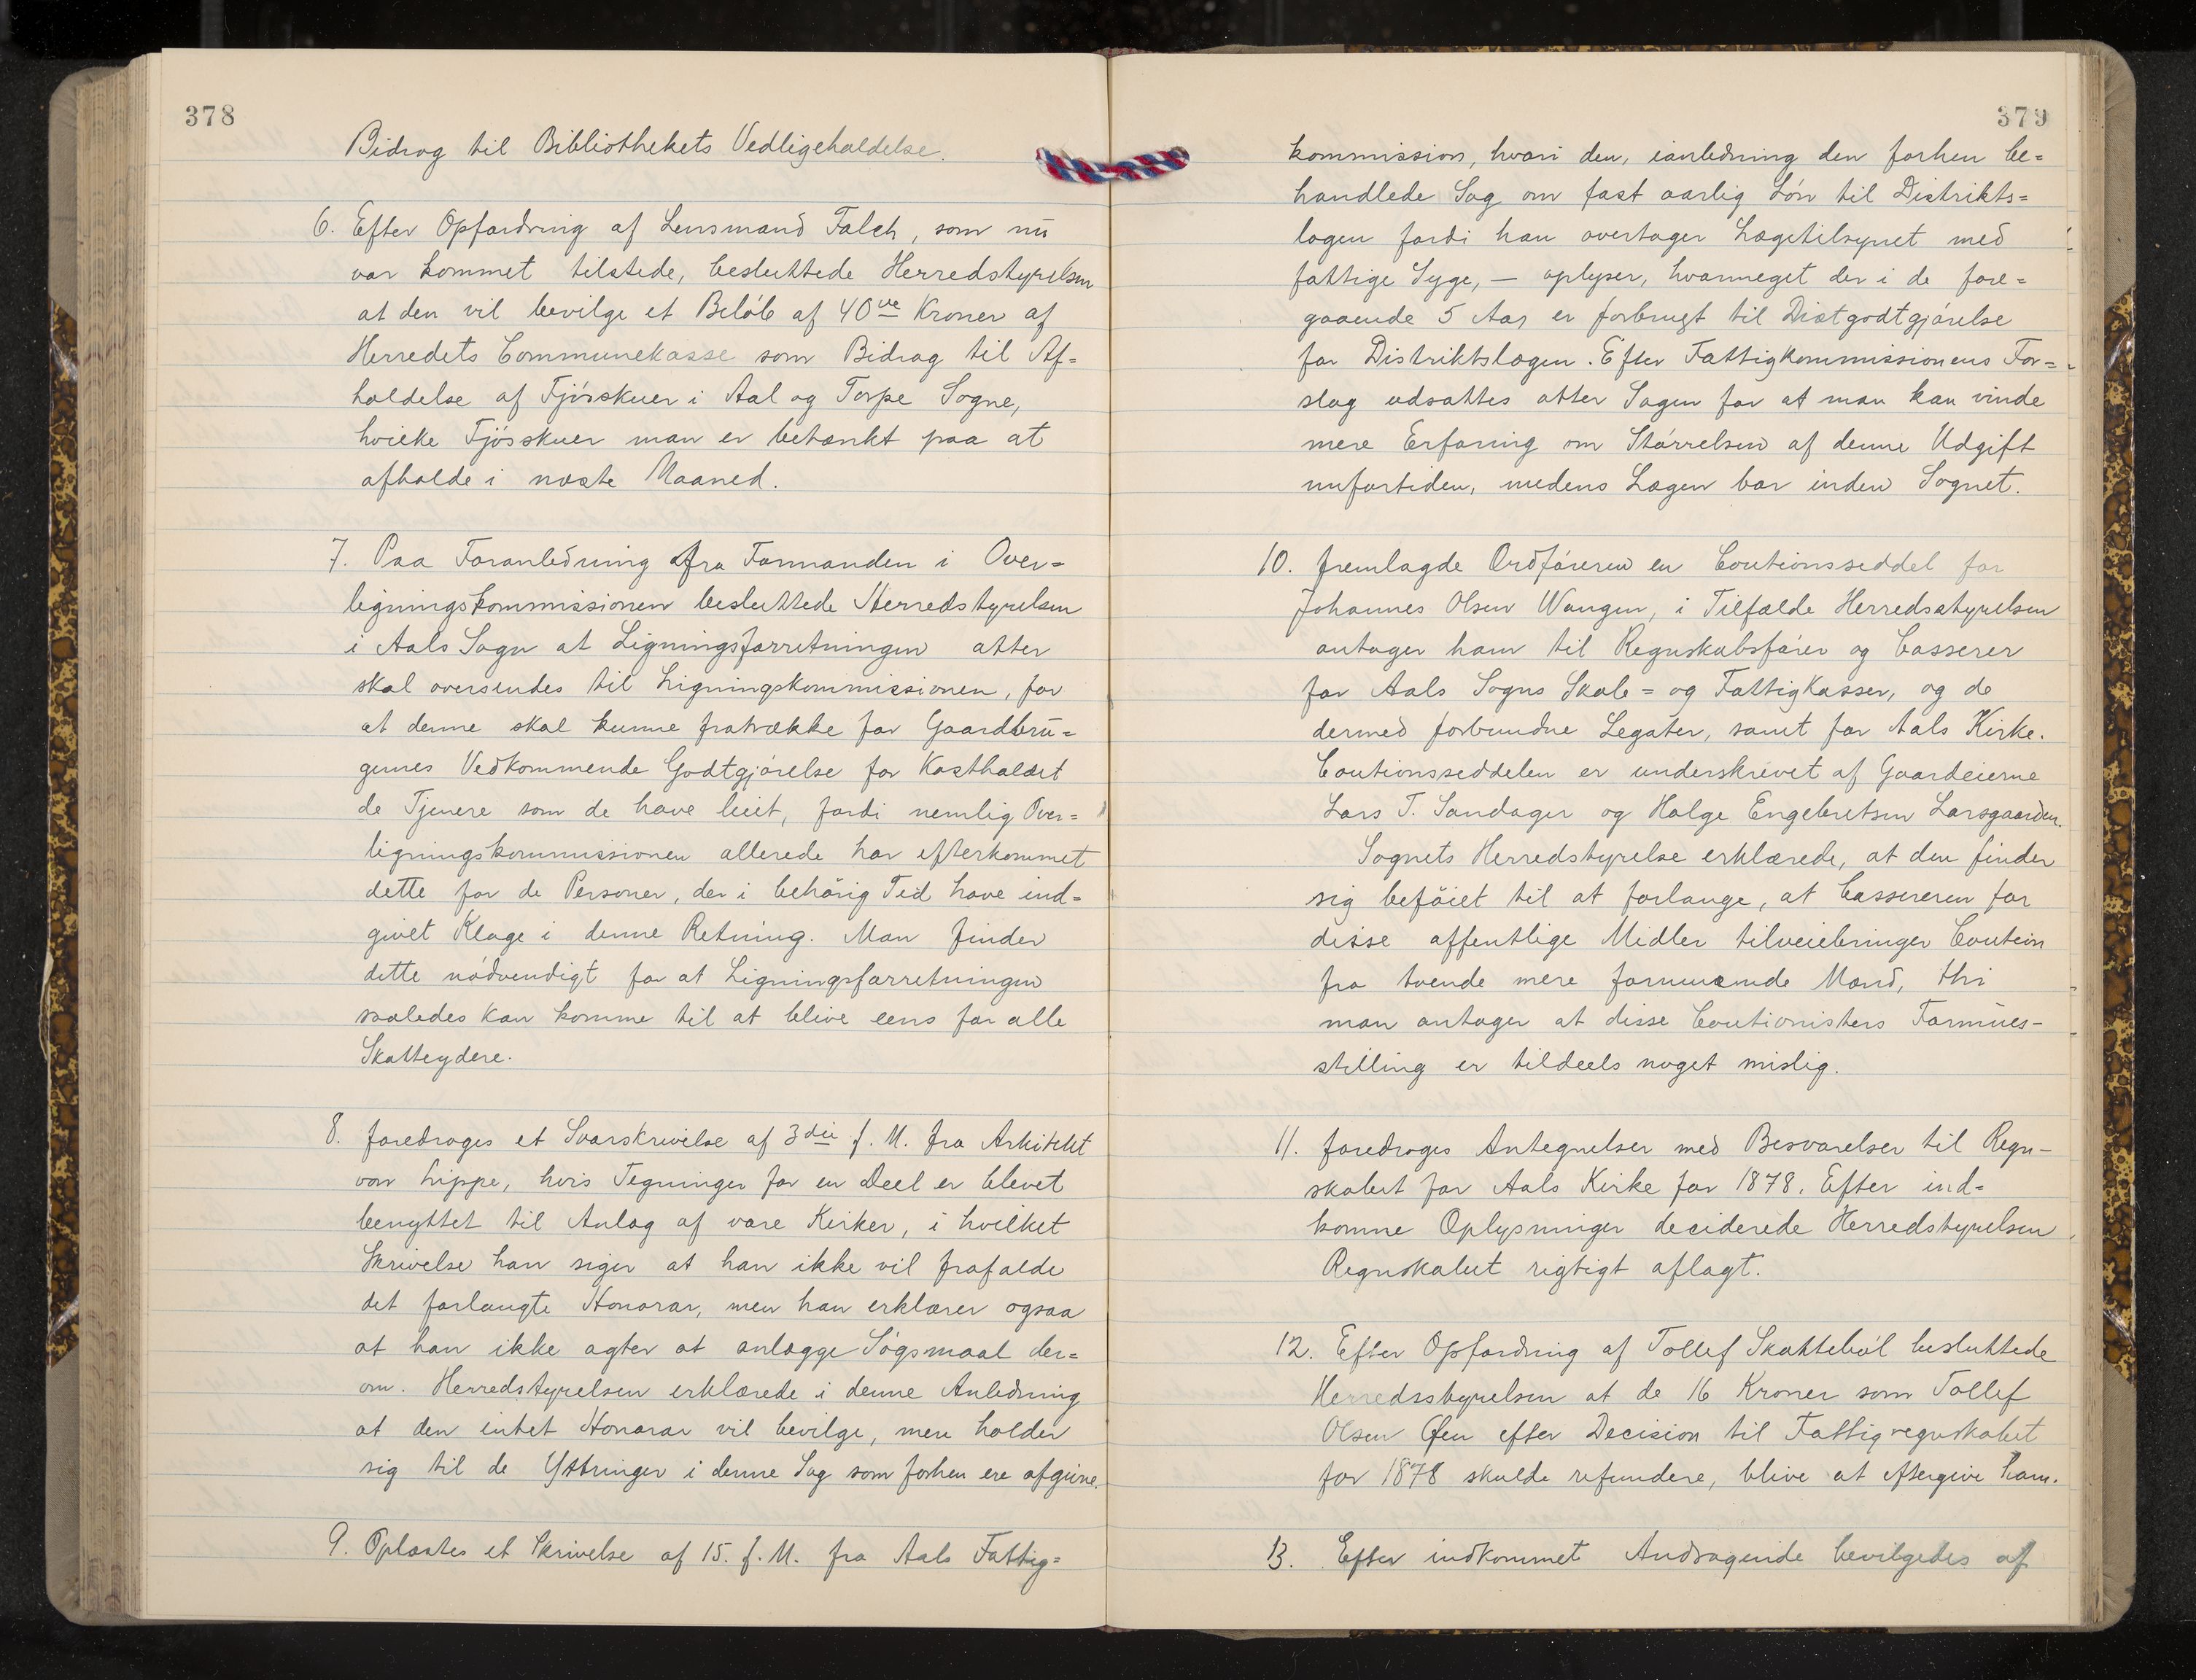 378
Bidrag til Bibliothekets Vedligeholdelse.
6. Efter Opfordring af Lensmand Falch, som nu
var kommet tilstede, besluttede Herredstyrelsen
at den vil bevilge et Beløb af 40ve Kroner af
Herredets Communekasse som Bidrag til Af=
holdelse af Fjösskuer i Aal og Torpe Sogne,
hvilke Fjösskuer man er betænkt paa at
afholde i næste Maaned.
7. Paa Foranledning fra Formanden i Over=
ligningskommissionen besluttede Herredstyrelsen
i Aals Sogn at Ligningsforretningen atter
skal oversendes til Ligningskommissionen, for
at denne skal kunne fratrække for Gaardbru=
gernes Vedkommende Godtgjørelse for Kostholdet
de Tjenere som de have leiet, fordi nemlig Over=
ligningskommissionen allerede har efterkommet
dette for de Personer, der i behörig Tid have ind=
givet Klage i denne Retning. Man finder
dette nödvendigt for at Ligningsforretningen
saaledes kan komme til at blive eens for alle
Skatteydere.
8. foredroges et Svarskrivelse af 3die f. M. fra Arkitekt
von Lippe, hvis Tegninger for en Deel er blevet
benyttet til Anlæg af vare Kirker, i hvilket
Skrivelse han siger at han ikke vil frafalde
det forlangte Honorar, men han erklærer ogsaa
at han ikke agter at anlægge Sögsmaal der=
om. Herredstyrelsen erklærede i denne Anledning
at den intet Honorar vil bevilge, men holder
sig til de Yttringer i denne Sag som forhen ere afgivne.
9. Oplæstes et Skrivelse af 15. f. M. fra Aals Fattig=
379
kommission, hvori den, ianledning den forhen be=
handlede Sag om fast aarlig Lön til Distrikts=
lægen fordi han overtager Lægetilsynet med
fattige Syge, — oplyser, hvormeget der i de fore=
gaaende 5 Aar er forbrugt til Diætgodtgjörelse
for Distriktslægen. Efter Fattigkommissionens For=
slag udsattes atter Sagen for at man kan vinde
mere Erfaring om Störrelsen af denne Udgift
nufortiden, medens Lægen bor inden Sognet.
10. fremlagde Ordföreren en Coutionsseddel for
Johannes Olsen Wangen, i Tilfælde Herredsstyrelsen
antager ham til Regnskabsförer og Casserer
for Aals Sogns Skole= og Fattigkasser, og de
dermed forbundne Legater, samt for Aals Kirke.
Coutionsseddelen er underskrevet af Gaardeierne
Lars T. Sandager og Holge Engebretsen Larsgaarden.
Sognets Herredstyrelse erklærede, at den finder
sig beföiet til at forlange, at Cassereren for
disse offentlige Midler tilveiebringer Coution
fra tvende mere formuende Mænd, thi
man antager at disse Coutionisters Formues-
stilling er tildeels noget mislig.
11. foredroges Antegnelser med Besvarelser til Regn-
skabet for Aals Kirke for 1878. Efter ind=
komne Oplysninger deciderede Herredstyrelsen
Regnskabet rigtigt aflagt.
12. Efter Opfordring af Tollef Skattebøl besluttede
Herredsstyrelsen at de 16 Kroner som Tollef
Olsen efter Decision til Fattigregnskabet
for 1878 skulde refundere, blive at eftergive ham.
13. Efter indkommet Andragende bevilgedes af